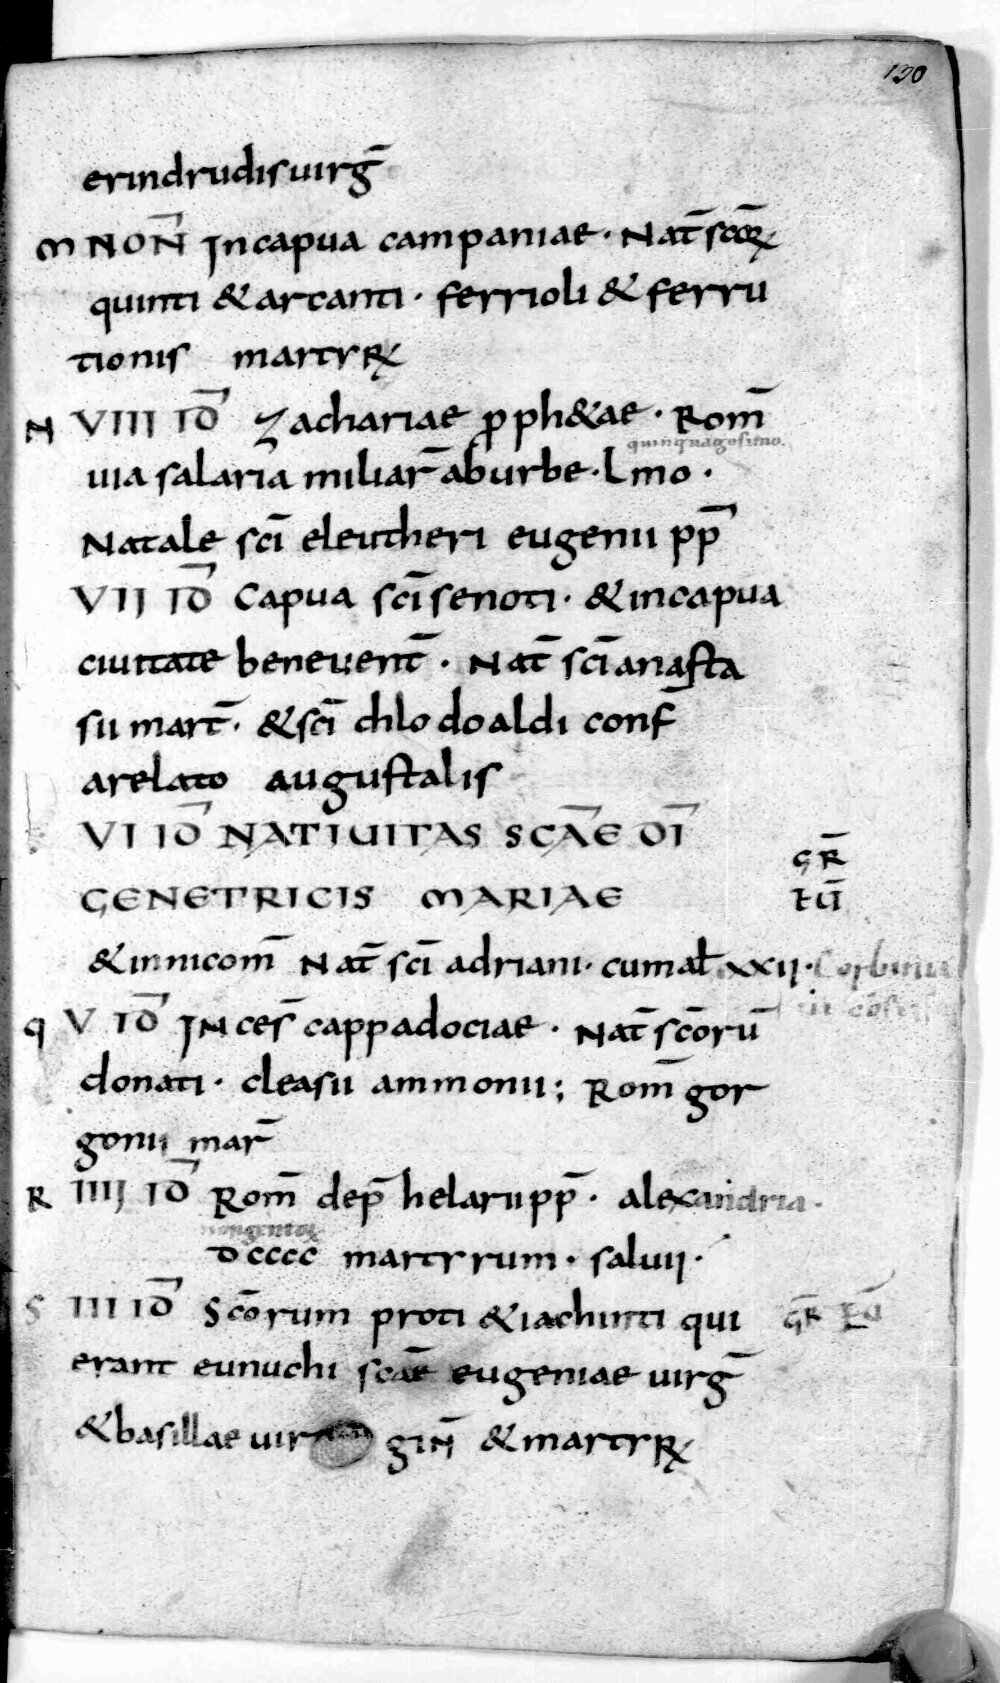 130
erindrudis uirḡ
M NOÑ Incapua campaniae · Nat̄ sc̄oꝝ
quinti & arcanti · ferrioli & ferru
tionis martyꝝ
N VIII ID̄ Zachariae ꝓph&ae · Rom̄
quinquagesimo.
uia salaria miliar̄ aburbe · Lmo ·
Natale sc̄i eleutheri eugenii pp̄
VII ID̄ Capua sc̄i senoti · & incapua
ciuitate beneuent̄ · Nat̄ sc̄i anasta
sii mart̄ · & sc̄i chlodoaldi conf̄
arelato augustalis
VI ID̄ NATIUITAS SC̄AE DĪ
GR̄
GENETRICIS MARIAE
TŪ
& in nicom̄ Nat̄ sc̄i adriani · cum al̄ xxii ·
Q V ID̄ IN ces̄ cappadociae · Nat̄ sc̄orū
donati · cleasii ammonii ; Rom̄ gor
gonii mar̄
R IIII ID̄ Rom̄ dep̄ helarii pp̄ · alexandria ·
DCCCC martyrum · saluii ·
S III ID̄ Sc̄orum proti & iachinti qui GR̄ TŪ
erant eunuchi sc̄ae eugeniae uirḡ
& basillae uir gin̄ & martyꝝ